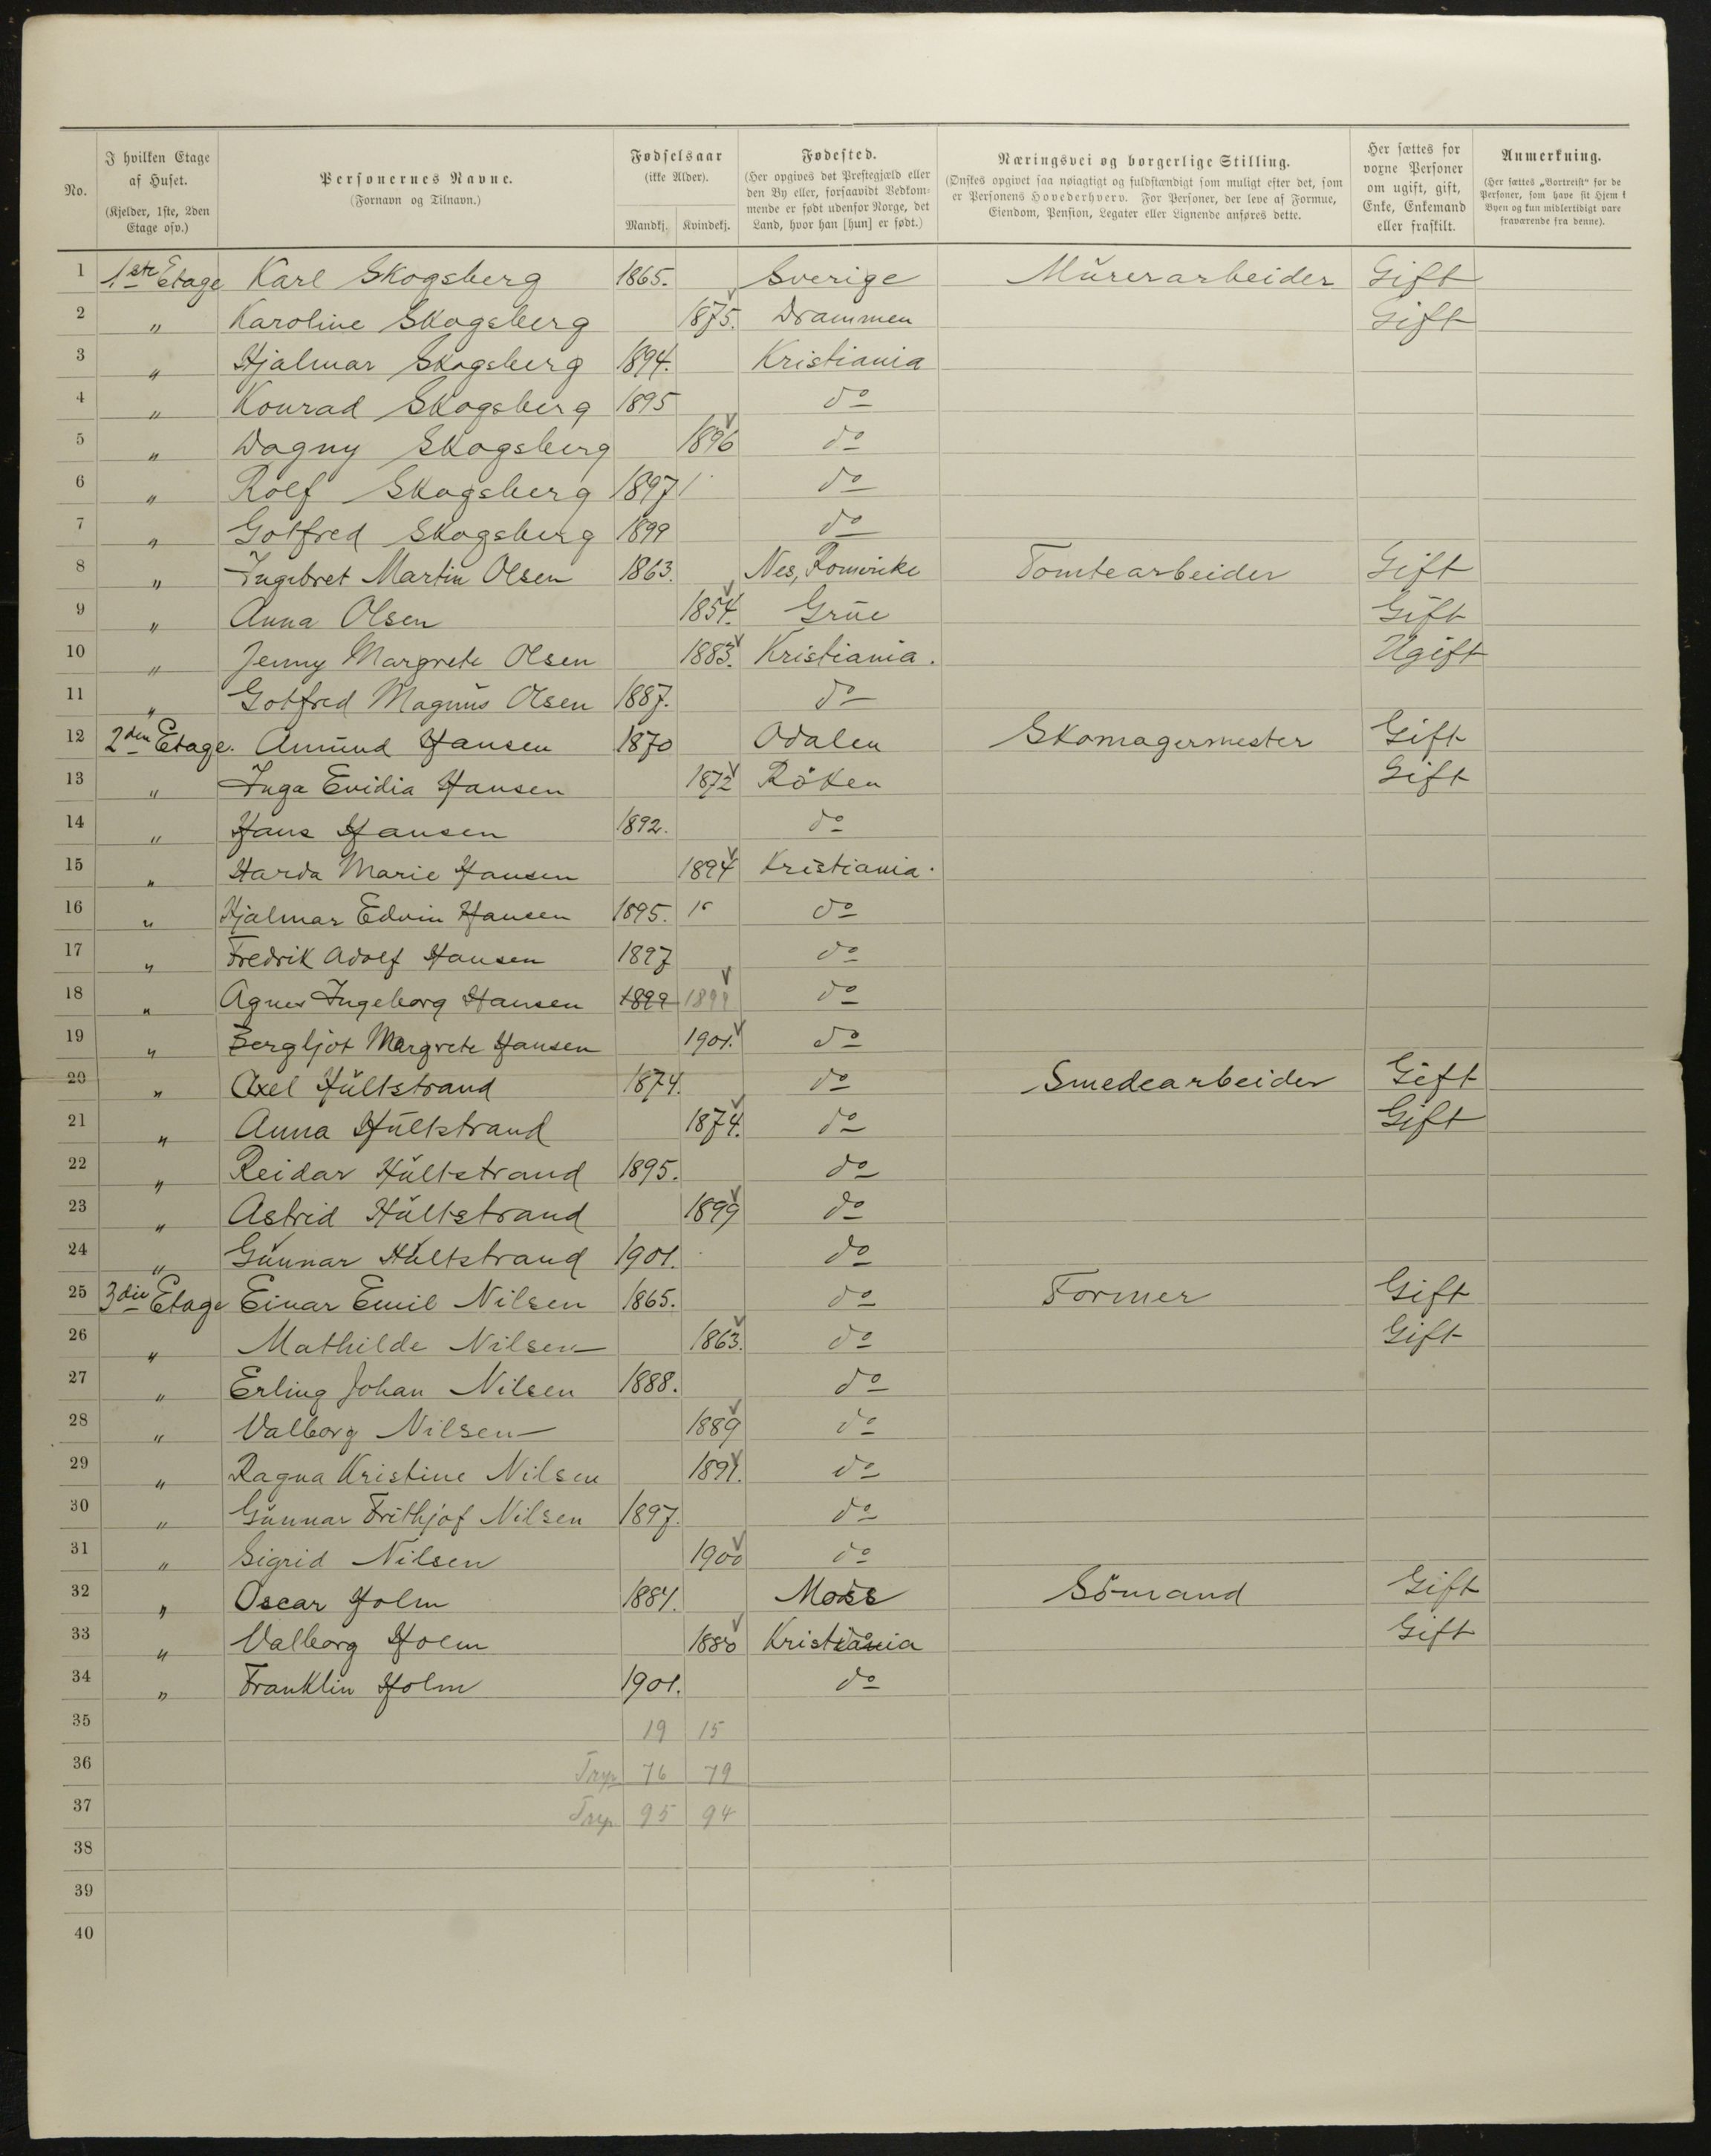 No.
I hvilken Etage af Huset.
(Kjelder, 1ste, 2den Etage osv.)
Personernes Navne.
(Fornavn og Tilnavn.)
Fødselsaar
(ikke Alder).
Mandkj. Kvindekj.
Fødested.
(Her opgives det Prestegjæld eller den By eller, forsaavidt Vedkommende er født udenfor Norge, det Land, hvor han [hun] er født.)
Næringsvei og borgerlige Stilling.
(Ønskes opgivet saa nøiagtigt og fuldstændigt som muligt efter det, som er Personens Hovederhverv. For Personer, der leve af Formue, Eiendom, Pension, Legater eller Lignende anføres dette.
Her sættes for voxne Personer om ugift, gift, Enke, Enkemand eller fraskilt.
Anmerkning.
(Her sættes „Bortreist" for de Personer, som have sit Hjem i Byen og kun midlertidigt vare fraværende fra denne).
1 1ste Etage Karl Skogsberg 1865. Sverige Mŭrerarbeider Gift
2 " Karoline Skogsberg 1875. Drammen Gift
3 " Hjalmar Skogsberg 1894. Kristiania
4 " Konrad Skogsberg 1895 do
5 " Dagny Skogsberg 1896 do
6 " Rolf Skogsberg 1897 do
7 " Gotfred Skogsberg 1899 do
8 " Ingebret Martin Olsen 1863. Nes, Romerike Tomtearbeider Gift
9 " Anna Olsen 1854. Grŭe Gift
10 " Jenny Margrete Olsen 1883. Kristiania. Ugift
11 " Gotfred Magnŭs Olsen 1887. do
12 2den Etage. Amŭnd Hansen 1870 Odalen Skomagermester Gift
13 " Inga Evidia Hansen 1872 Röken Gift
14 " Hans Hansen 1892. do
15 " Harda Marie Hansen 1894 Kristiania.
16 " Hjalmar Edvin Hansen 1895. do
17 " Fredrik Adolf Hansen 1897 do
18 " Agnes Ingeborg Hansen 1899 1899 do
19 " Bergljot Margrete Hansen 1901. do
20 " Axel Hŭltstrand 1874. do Smedearbeider Gift
21 " Anna Hŭltstrand 1874. do Gift
22 " Reidar Hŭltstrand 1895. do
23 " Astrid Hŭltstrand 1899 do
24 " Gŭnnar Hŭltstrand 1901. do
25 3die Etage Einar Emil Nilsen 1865. do Former Gift
26 " Mathilde Nilsen 1863. do Gift
27 " Erling Johan Nilsen 1888. do
28 " Valborg Nilsen 1889 do
29 " Ragna Kristine Nilsen 1891. do
30 " Gŭnnar Frithjof Nilsen 1897. do
31 " Sigrid Nilsen 1900 do
32 " Oscar Holm 1881. Moss Sömand Gift
33 " Valborg Holm 1880 Kristiania Gift
34 " Franklin Holm 1901. do
35 19 15
36 76 79
37 95 94
38
39
40